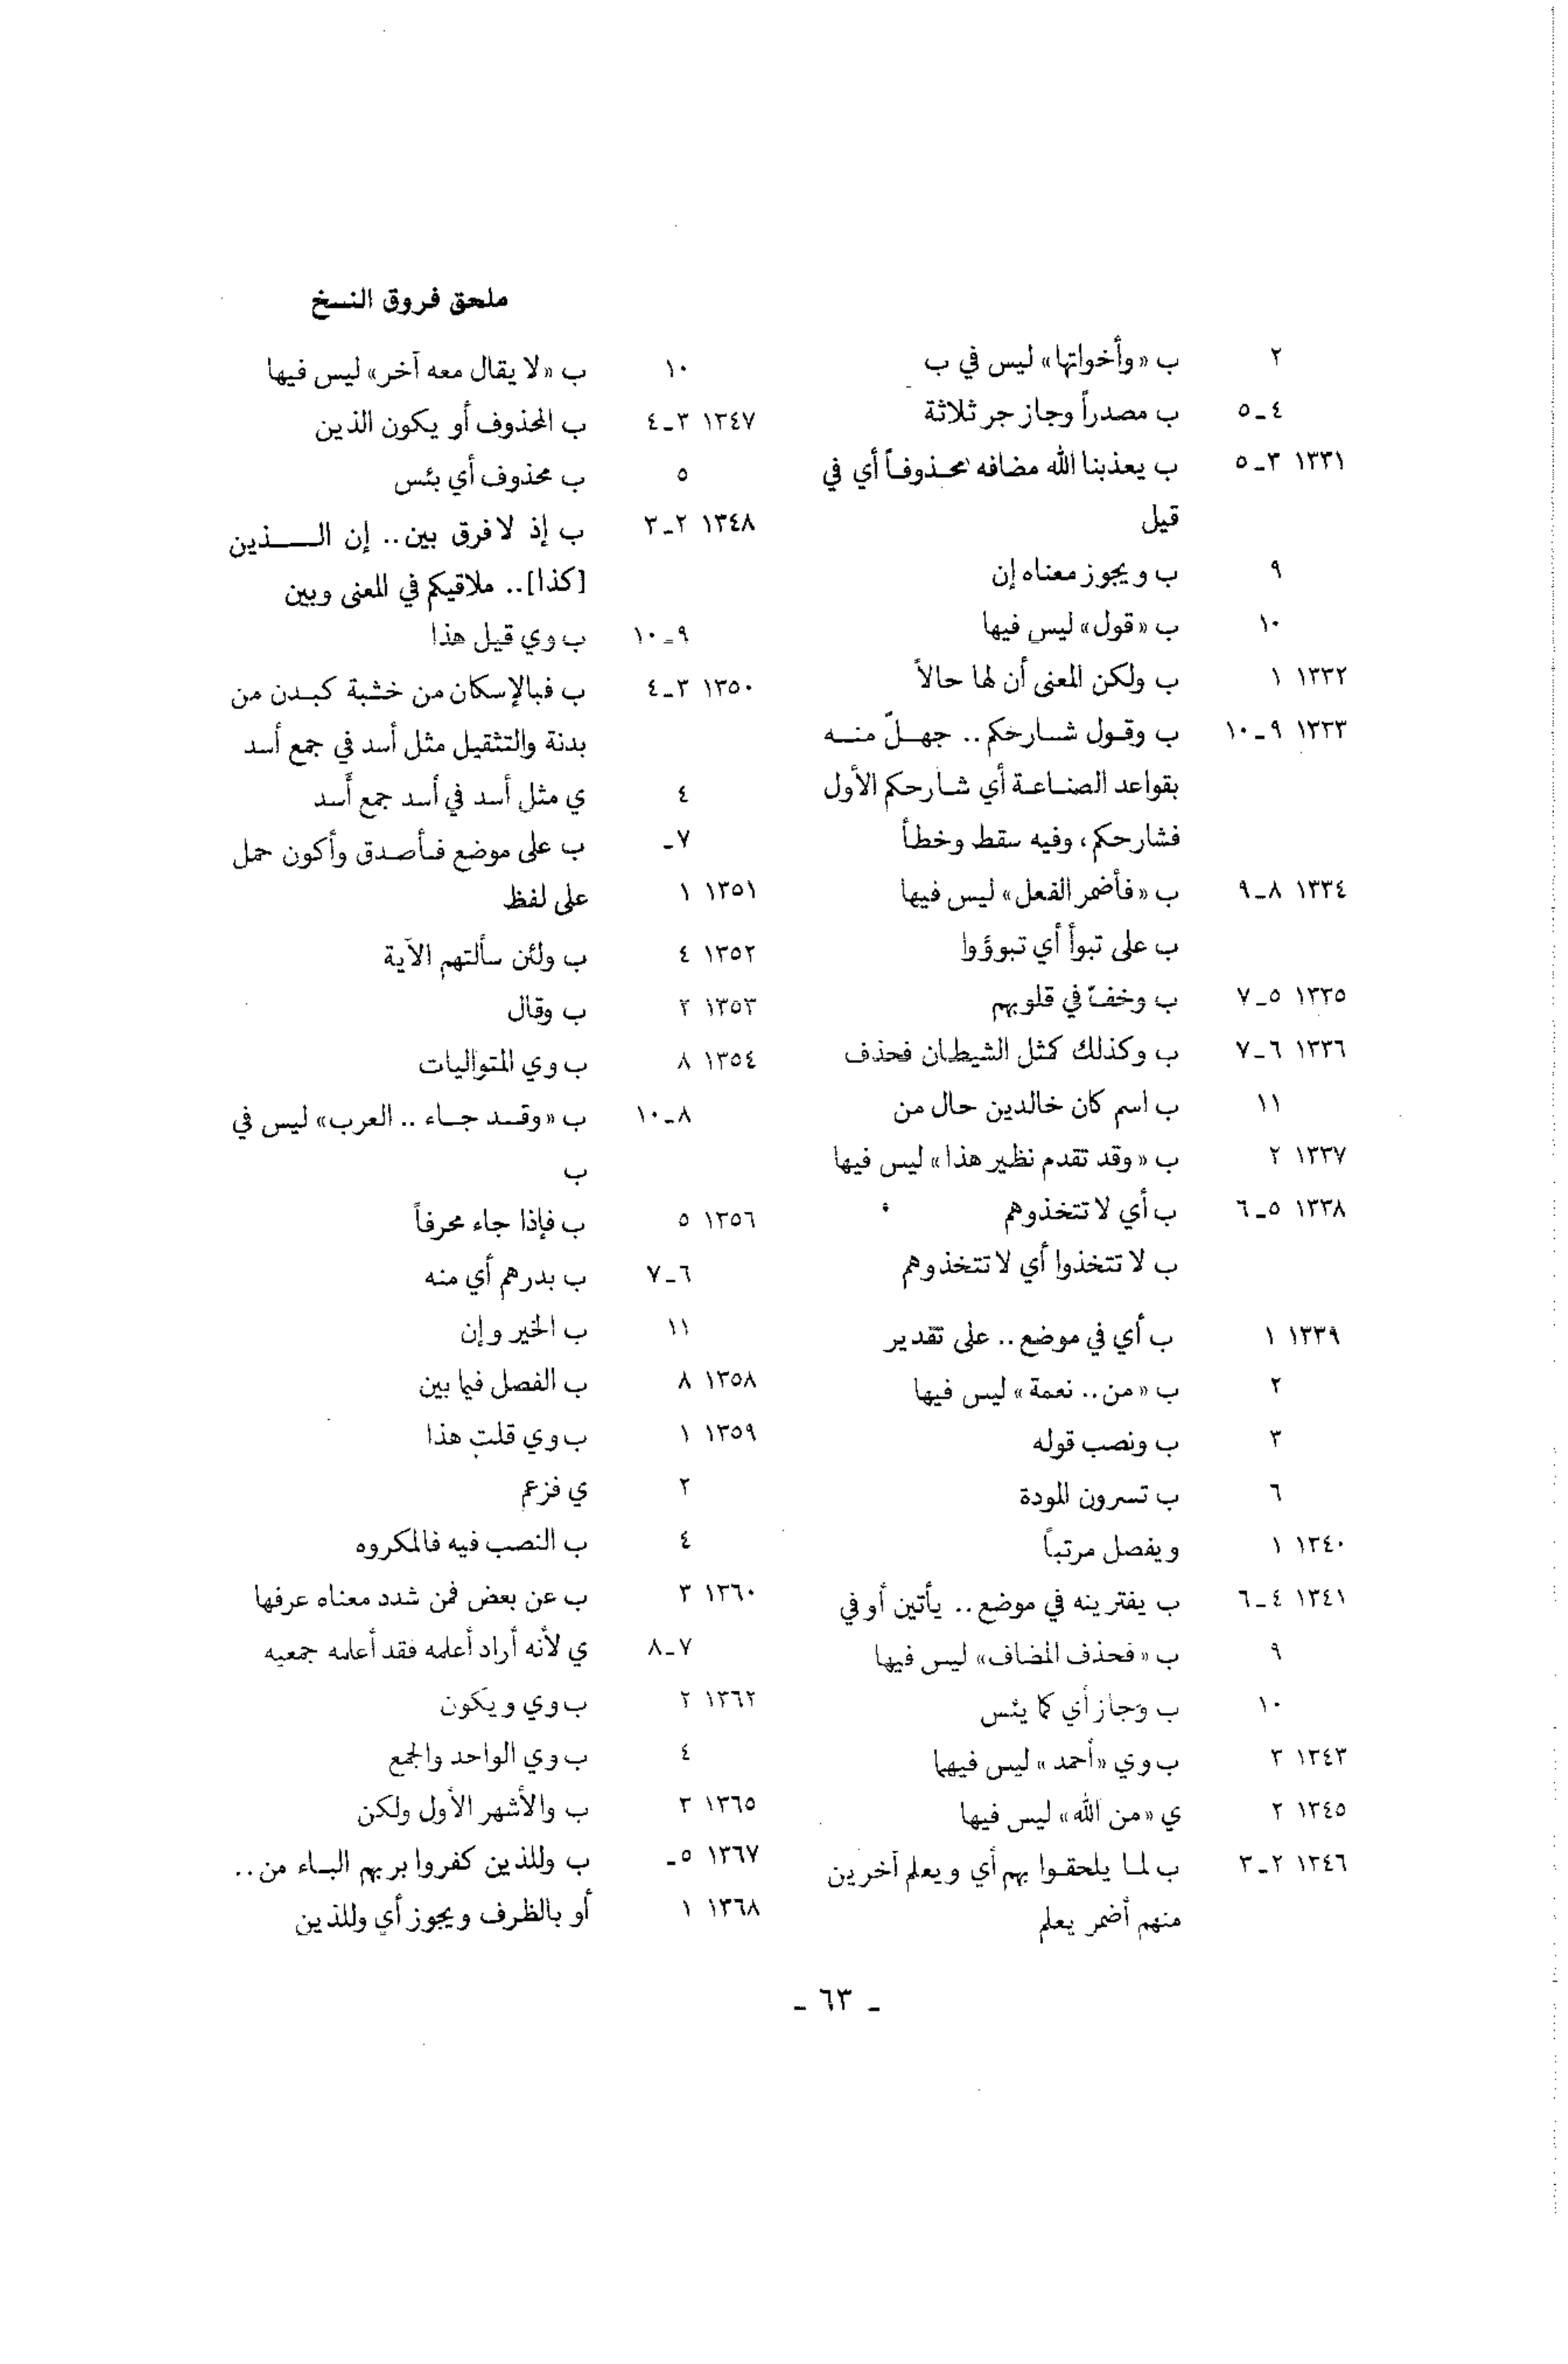 ملحق فروق النسخ
٢ ب «وأخواتها» ليس في ب
٤ـ٥ ب مصدراً وجاز جر ثلاثة
١٣٣١ ٣ـ٥ ب يعذبنا الله مضافه محذوفاً أي في
قيل
٩ ب ويجوز معناه إن
١٠ ب «قول» ليس فيها
١٣٣٢ ١ ب ولكن المعنى أن لها حالاً
١٣٣٣ ٩ـ١٠ ب وقول شارحكم .. جهلّ منه
بقواعد الصناعة أي شارحكم الأول
فشارحكم، وفيه سقط وخطأ
١٣٣٤ ٨ـ٩ ب «فأضمر الفعل» ليس فيها
ب على تبوأ أي تبوؤوا
١٣٣٥ ٥ـ٧ ب وخفّ في قلوبهم
١٣٣٦ ٦ـ٧ ب وكذلك كمثل الشيطان فحذف
١١ ب اسم كان خالدين حال من
١٣٣٧ ٢ ب «وقد تقدم نظير هذا» ليس فيها
١٣٣٨ ٥ـ٦ ب أي لا تتخذوهم
ب لا تتخذوا أي لا تتخذوهم
١٣٣٩ ١ ب أي في موضع .. على تقدير
٢ ب «من .. نعمة» ليس فيها
٣ ب ونصب قوله
٦ ب تسرون المودة
١٣٤٠ ١ ويفصل مرتباً
١٣٤١ ٤ـ٦ ب يفترينه في موضع .. يأتين أو في
٩ ب «فحذف المضاف» ليس فيها
١٠ ب وجاز أي كما يئس
١٣٤٣ ٣ ب وي «أحمد» ليس فيها
١٣٤٥ ٢ ي «من الله» ليس فيها
١٣٤٦ ٢ـ٣ ب لما يلحقوا بهم أي ويعلم آخرين
منهم أضمر يعلم
١٠ ب «لا يقال معه آخر» ليس فيها
١٣٤٧ ٣ـ٤ ب المحذوف أو يكون الذين
٥ ب محذوف أي بئس
١٣٤٨ ٢ـ٣ ب إذ لا فرق بين .. إن الـذين
[كذا] .. ملاقيكم في المعنى وبين
٩ـ١٠ ب وي قيل هذا
١٣٥٠ ٣ـ٤ ب فبالإسكان من خشبة كبدن من
بدنة والتثقيل مثل أسد في جمع أسد
٤ ي مثل أسد في أسد جمع أَسد
٧ـ ب على موضع فأصدق وأكون حمل
١٣٥١ ١ على لفظ
١٣٥٢ ٤ ب ولئن سألتهم الآية
١٣٥٣ ٢ ب وقال
١٣٥٤ ٨ ب وي المتواليات
٨ـ١٠ ب «وقد جاء .. العرب» ليس في
ب
١٣٥٦ ٥ ب فإذا جاء محرفاً
٦ـ٧ ب بدرهم أي منه
١١ ب الخير وإن
١٣٥٨ ٨ ب الفصل فيما بين
١٣٥٩ ١ ب وي قلت هذا
٢ ي فزعم
٤ ب النصب فيه فالمكروه
١٣٦٠ ٣ ب عن بعض فمن شدد معناه عرفها
٧ـ٨ ي لأنه أراد أعلمه فقد أعلمه جمعيه
١٣٦٢ ٢ ب وي ويكون
٤ ب وي الواحد والجمع
١٣٦٥ ٣ ب والأشهر الأول ولكن
١٣٦٧ ٥ـ ب وللذين كفروا بربهم الباء من ..
١٣٦٨ ١ أو بالظرف ويجوز أي وللذين
ـ ٦٣ ـ